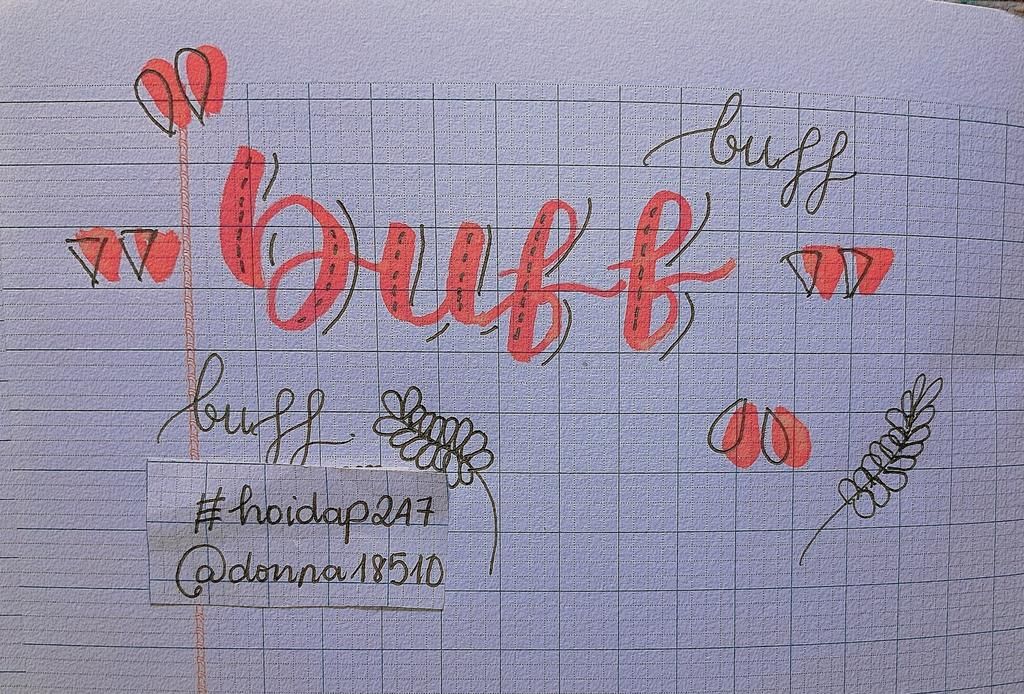 buff
buff
buff
#hoidap247
@donna18510